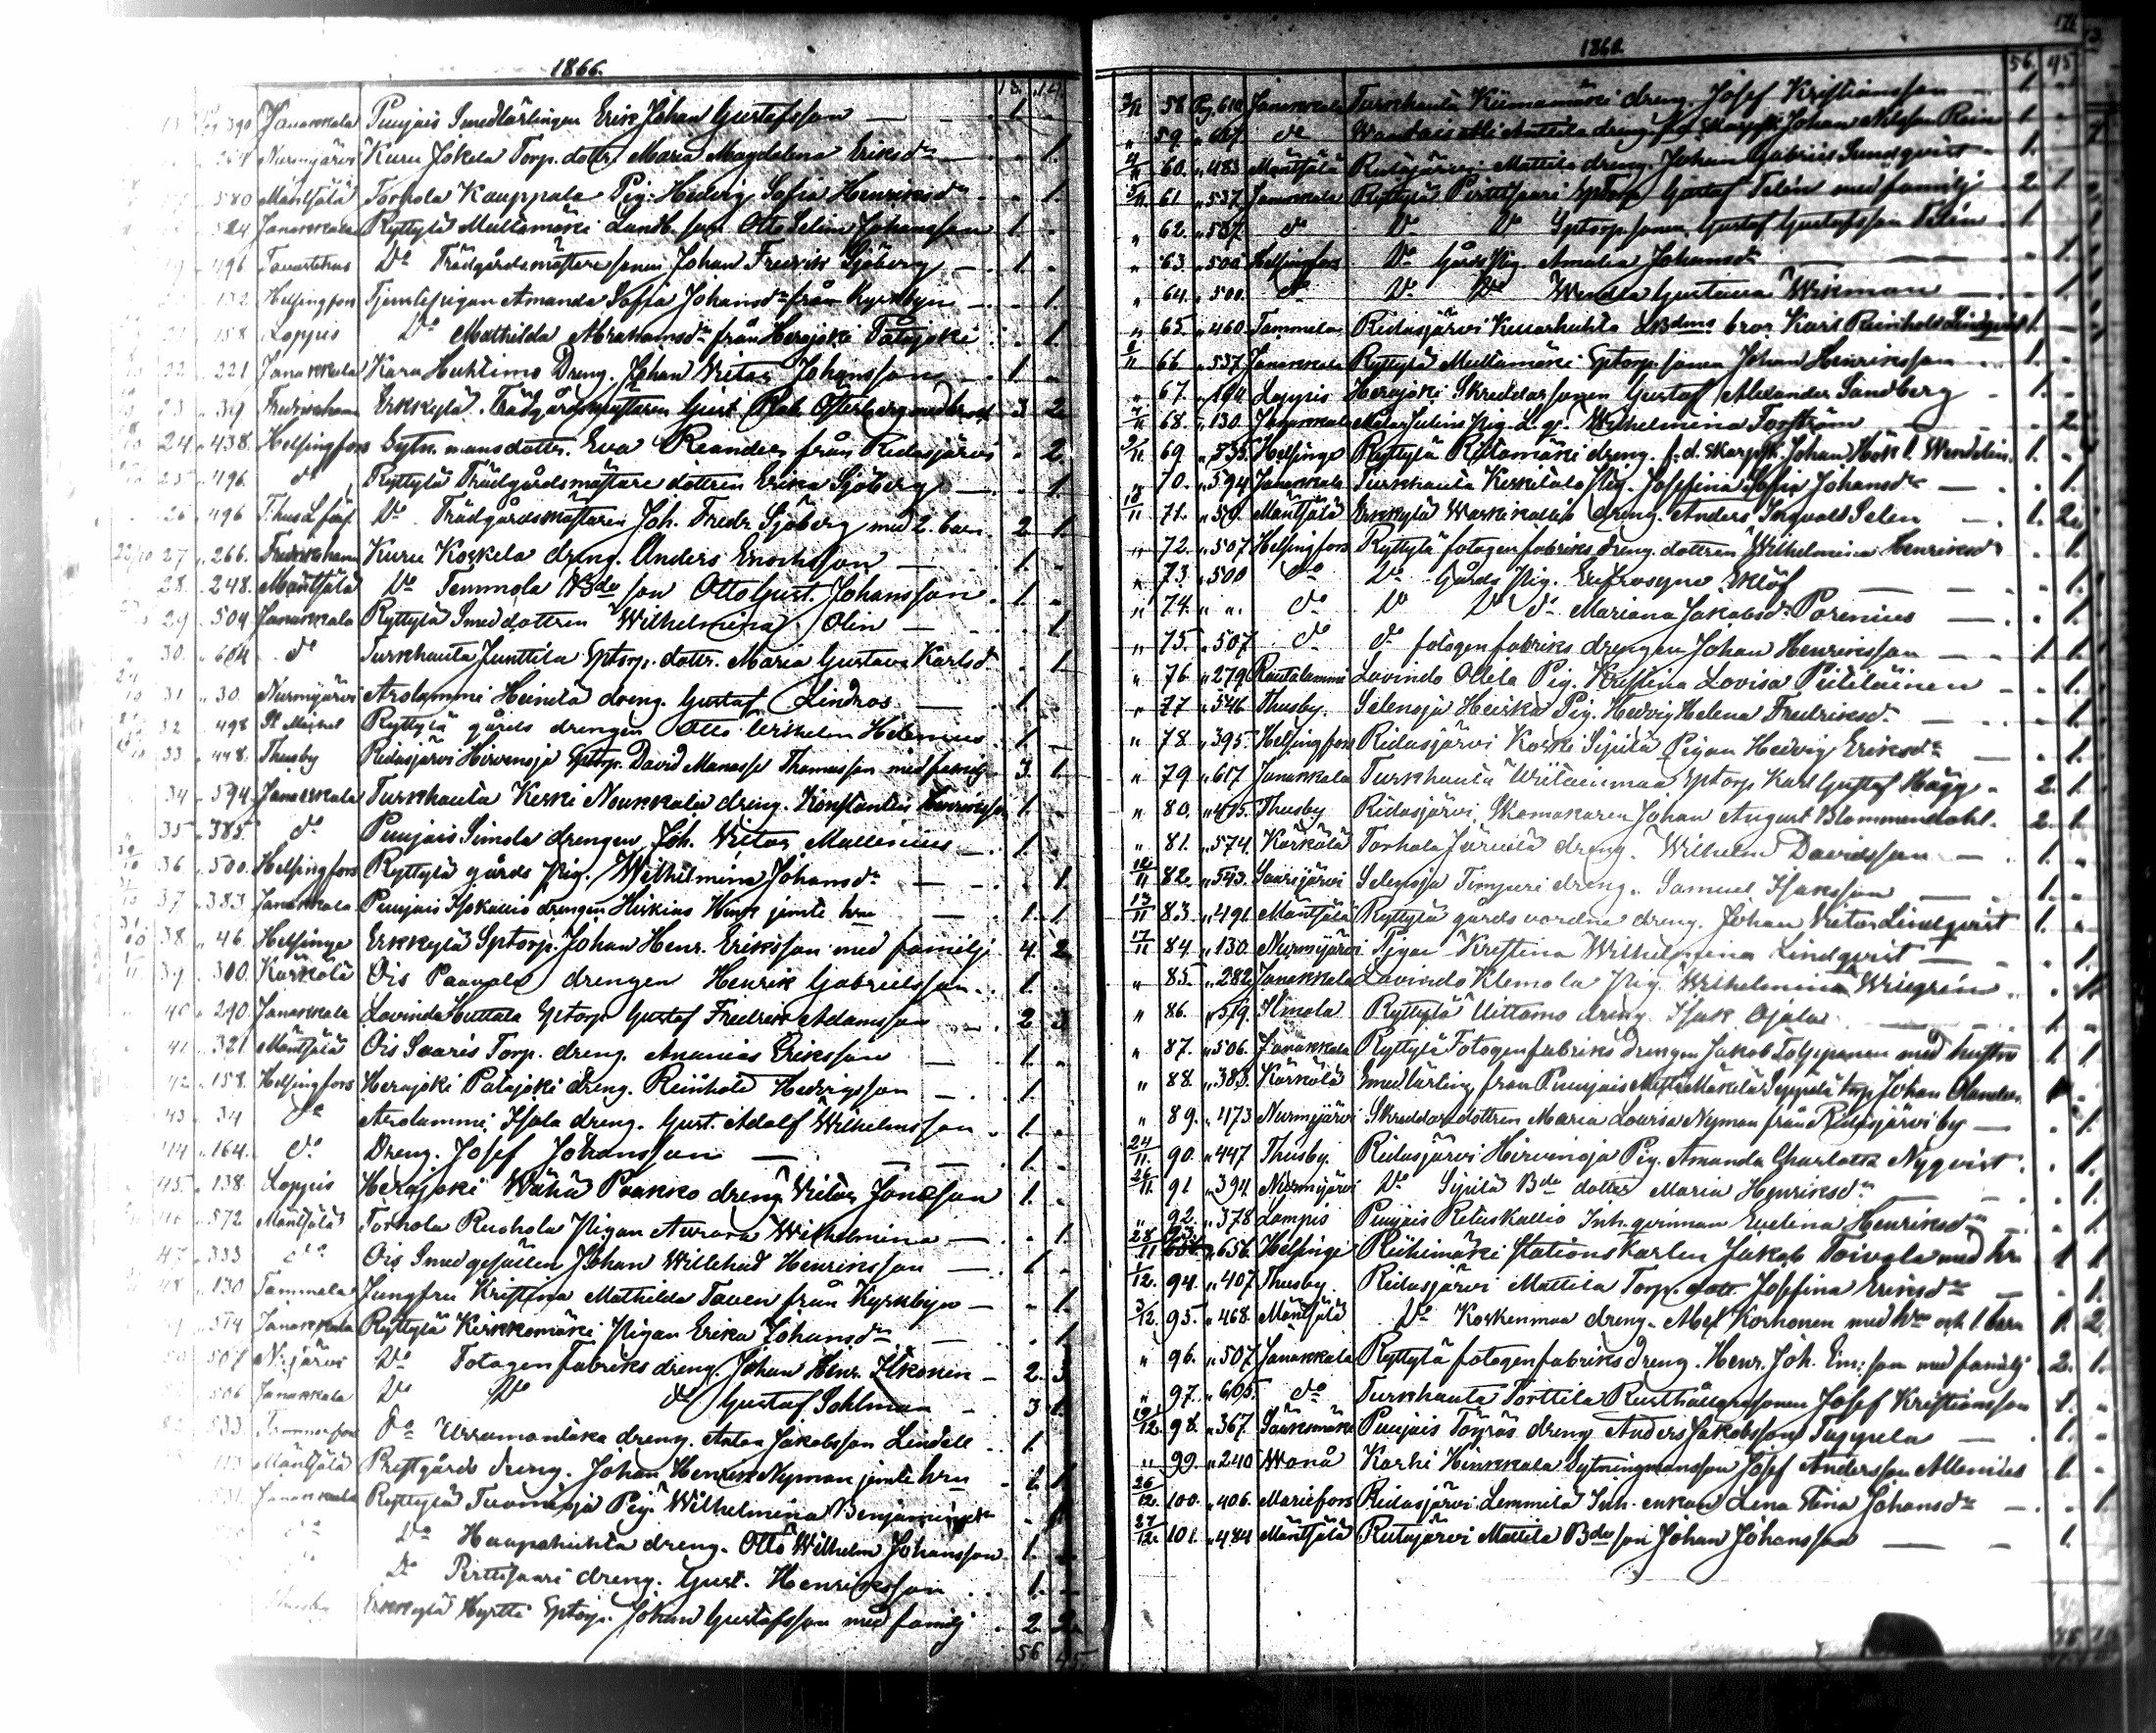 1866.
13. 14.
390 Janakkala Puujais Smedlärlingen Erik Johan Gustafsson — 1. "
264 Nurmijärvi Kuru Jokela Torp. dottr. Maria Magdalena Eriksdr — " 1.
580 Mäntsälä Torhola Kauppala Pig. Hedvig Sofia Henriksdr " 1.
524 Janakkala Ryttylä Multamäki Landb. son Otto Selim Johansson 1. "
496 Tavastehus Do Trädgårdsmästare sonen Johan Fredrik Sjöberg — 1. "
132 Helsingfors Tjenstepigan Amanda Sofia Johansdr från Kyrkbyn — " 1.
158 Loppis Do Mathilda Abrahamsdr från Herajoki Patajoki " 1.
22 221 Janakkala Kara Huhtimo Dreng. Johan Victor Johansson 1. "
23 39 Fredrikshamn Erkkylä Trädgårdsmästaren Gust. Österberg med 3 2.
24 438. Helsingfors Sytn. mansdottr. Eva Reander från Ridasjärvi " 2.
25 496. do Ryttylä Trädgårdsmästare dottren Erika Sjöberg — " 1.
26 496 Do Trädgårdsmästaren Joh. Fredr. Sjöberg med 2. barn 2 1.
27 266. Fredrikshamn Kuru Koskela dreng. Anders Enochsson — 1. "
28. 248. Mäntsälä Do Temmola Bdo son Otto Gust. Johansson. 1. "
29 504 Janakkala Ryttylä Smeddottren Wilhelmina Olin — " 1.
30. 604 do Turkhauta Junttila Sptorp. dottr. Maria Gustava Karlsd. " 1.
31 30. Nurmijärvi Arolammi Heinlä dreng. Gustaf Lindros — 1. "
32 498 St Michel Ryttylä gårds drengen Otto Wilhelm Helenius 1. "
33 448. Thusby Ridasjärvi Hirvenoja Sptorp. David Manasse Thomasson med familj 3. 1.
34 594 Janakkala Turkhauta Keski Noukkala dreng. Konstantin Henriksson 1. "
35 385. do Puujais Simola drengen Joh. Victor Mallenius — 1. "
36 500. Helsingfors Ryttylä gårds Pig. Wilhelmina Johansdr — " 1.
37 383 Janakkala Puujais Isokallio drengen Hiskias Henr. jemte hru — 1. 1.
38. 46. Helsinge Erkkylä Sptorp. Johan Henr. Eriksson med familj 4. 2
39. 300. Kärkölä Ois Paavola drengen Henrik Gabrielsson 1. "
40 290. Janakkala Lovinda Huttala Sptorp. Gustaf Fredrik Adamsson — 2 3
41. 321 Mäntsälä Ois Saaris Torp. dreng. Ananias Eriksson — 1. "
42. 158. Helsingfors Herajoki Patajoki dreng. Reinhold Hedvigsson — 1. "
43. 34 do Arolammi Isola dreng. Gust. Adolf Wilhelmsson 1. "
44 164. do Dreng. Josef Johansson — — 1. "
45. 138. Loppis Herajoki Wähä Paakko dreng. Victor Jonasson 1. "
46 572 Mäntsälä Torhola Ruohola Pigan Aurora Wilhelmina — " 1.
47 333 do Ois Smedgesällen Johan Willehad Henriksson — 1. "
48. 130 Tammela Jungfru Kristina Mathilda Taven från Kyrkbyn — " 1.
574 Janakkala Ryttylä Kirkkomäki Pigan Erika Johansdr — " 1
507 N:järvi Do Fotogenfabriks dreng. Johan Henr. Ilkonen — 2. 3
506 Janakkala Do Do do Gustaf Sohlman — 3 1.
533 do dreng. Anton Jakobsson Lindell 1. "
113 Mäntsälä Prestgårds dreng. Johan Henrik Nyman jemte hru 1 1
Janakkala Ryttylä Tuomioja Pig. Wilhelmina Benjaminsdr " 1
Do Haapahuhta dreng. Otto Wilhelm Johansson 1. "
Do Pirttisaari dreng. Gust. Henriksson 1. —
Erkkylä Hyrtti Sptorp. Johan Gustafsson med familj 2 2.
56 45
1866
56. 45
58. Pg. 610 Janakkala Turkhauta Kiimamäki dreng. Josef Kristiansson — 1 "
" 59 " 667 do Johan Nilsson 1 "
60. " 483 Mäntsälä Ridasjärvi Mattila dreng. Johan Gabriel Sundqvist — 1. "
61 " 537 Janakkala Ryttylä Pirttisaari Sptorp. Gustaf Telén med familj 2. 1
" 62. " 537 do Do Do Sptorp. sonen Gustaf Gustafsson Telén 1 "
" 63. " 500 Helsingfors Do Gårds Pig. Amalia Johansdr — " 1.
" 64. " 500. do Do Do Wendla Gustava Wikman — " 1.
" 65. " 460 Tammela Ridasjärvi Keuarhuhta bror Karl Reinhold Lindqvist 1. "
66. " 537 Janakkala Ryttylä Multamäki Sptorp. sonen Johan Henriksson 1. "
67. " 144 Loppis Herajoki Skreddarsonen Gustaf Alexander Sandberg 1. "
68. " 130. Janakkala Wilhelmina Forström " 2
69 " 535. Helsinge Ryttylä Riitamäki dreng. f.d. Johan Höök l. Wendelin. 1. "
" 70. " 594 Janakkala Turkhauta Keskitalo Pig. Josefina Sofia Johansdr — " 1.
71. " 59 Mäntsälä Erkkylä Warkikallio dreng. Anders Selen — 1. 2.
" 72. " 507 Helsingfors Ryttylä fotogenfabriks dreng. dottren Wilhelmina Henriksdr " 1.
" 73. " 500 do Do Gårds Pig. Eufrosyne Eklöf — " 1.
" 74. " " do Do Do do Mariana Jakobsdr Porenius — " 1.
" 75. " 507 do do fotogenfabriks drengen Johan Henriksson — 1. "
" 76. " 279 Rautalammi Lovindo Ollila Pig. Kristina Lovisa Piitiläinen — " 1.
" 77 " 546 Thusby. Selenoja Heiska Pig. Hedvig Helena Fredriksd. — " 1.
" 78. " 395. Helsingfors Ridasjärvi Koski Sipilä Pigan Hedvig Eriksdr — " 1.
" 79 " 617 Janakkala Turkhauta Wiitaenmaa Sptorp. Karl Gustaf Hägg 2. 1.
" 80. " 415. Thusby Ridasjärvi Skomakaren Johan August Blommendahl. 2. 1.
" 81. " 574. Kärkölä Torhola Järvelä dreng. Wilhelm Davidsson — 1. "
82. " 543. Saarijärvi Selenoja Timperi dreng. Samuel Isaksson — 1. "
13/11 83. " 491 Mäntsälä Ryttylä gårds vordne dreng. Johan Victor Lindqvist 1. "
17/11 84. " 130. Nurmijärvi Pigan Kristina Wilhelmina Lindqvist — " 1.
" 85. " 282. Janakkala Lovindo Klemola Pig. Wilhelmina " 1.
" 86. " 519. Ilmola Ryttylä Uittamo dreng. Isak Ojala — 1. "
" 87. " 506. Janakkala Ryttylä Fotogenfabriks drengen Jakob med hustru 1 1
" 88. " 383. Kärkölä Smedlärling från Puujais Johan Olander. 1. "
" 89. " 473 Nurmijärvi Skreddaredottren Maria Lovisa Nyman från Ridasjärvi by — " 1.
24/11. 90. " 447 Thusby. Ridasjärvi Hirvenoja Pig. Amanda Charlotta Nyqvist. " 1.
26/11. 91 " 394. Nurmijärvi Do Sipilä Bdo dotter Maria Henriksdr — " 1.
" 92. " 378 Lampis Puujais Retuskallio Inh. qvinnan Evelina Henriksdr " 1
28/11 " 656. Helsinge Riihimäki Stationskarlen Jakob Toivola med hru 1 1
1/12. 94. " 407 Thusby. Ridasjärvi Mattila Torp. dottr. Josefina Eriksdr — " 1.
3/12. 95. " 468. Mäntsälä Do Koskenmaa dreng. Alex Korhonen med hru och 1. barn 1. 2.
" 96. " 507 Janakkala Ryttylä fotogenfabriks dreng. Henr. Joh. med familj 2. 1.
" 97. " 605. do Turkhauta Torttila Rusthållaresonen Josef Kristiansson 1. "
98. " 367. Sääksmäki Puujais Töyräs dreng. Anders Jakobsson Tuppela — 1. "
" 99. " 240 Wånå Karhi Hinkkala Sytningmansson Josef Andersson Allenius 1. "
26/12. 100. " 406. Mariefors Ridasjärvi Lemmilä Inh. enkan Lena Stina Johansdr — " 1
27/12. 101. " 484 Mäntsälä Ridasjärvi Mattila Bdo son Johan Johansson — 1.